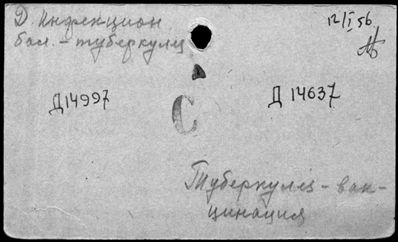 Д Инфекцион
бол. - туберкуліз
12/I 56
Д14997
Д 14637
С
Туберкуліз - вак-
цинация